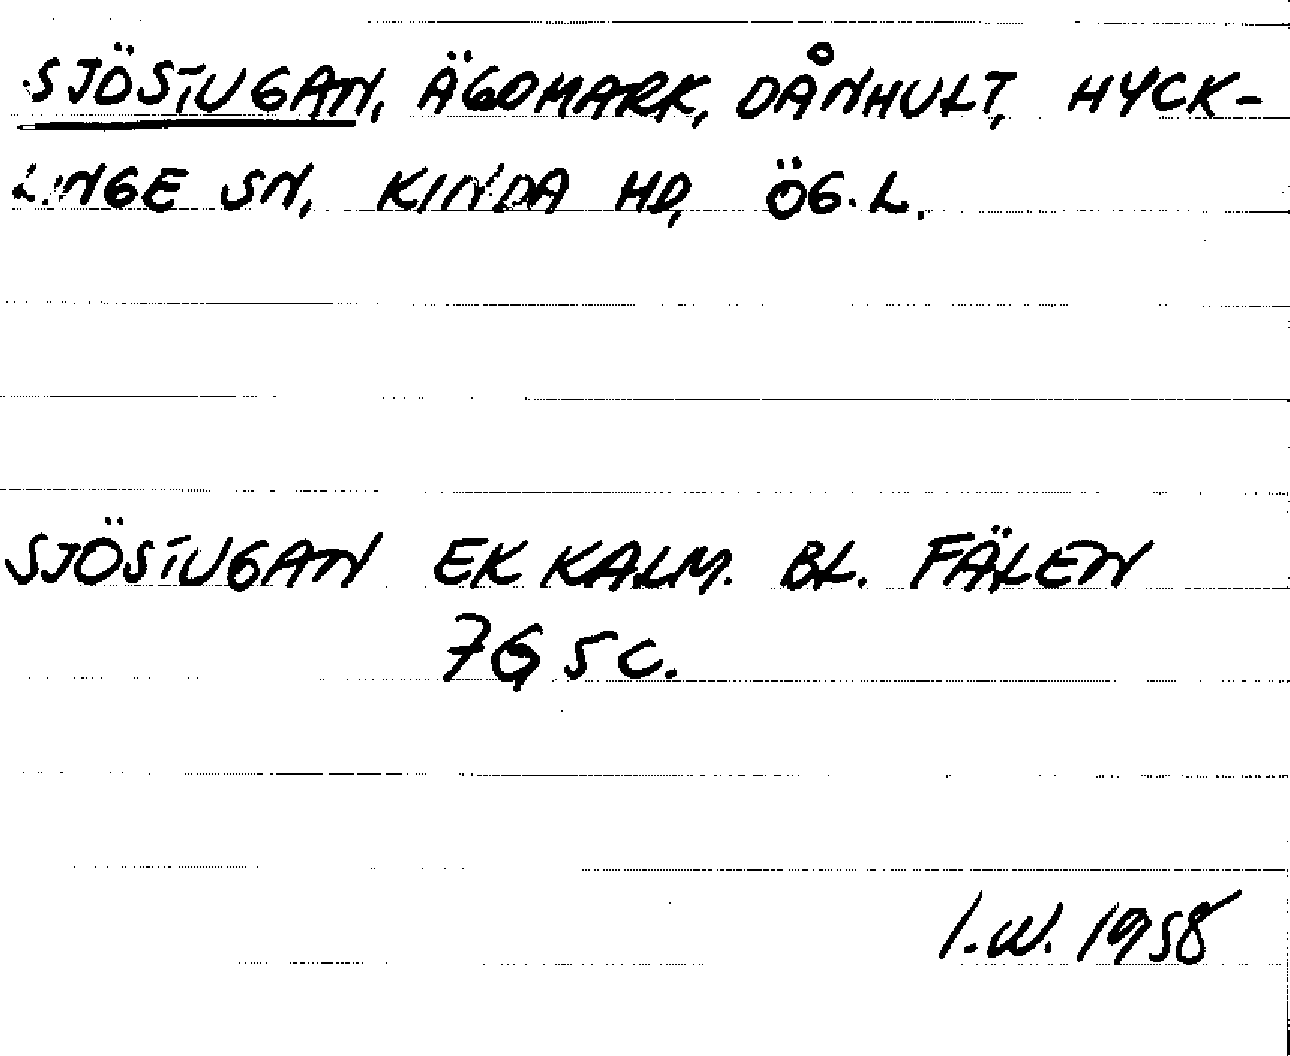 SJÖSTUGAN, ÄGOMARK, DÅNHULT, HYCK-
LINGE SN, KINDA HD, ÖG. L.
SJÖSTUGAN EK KALM. BL. FÄLEN
7G 5c.
I.W. 1958